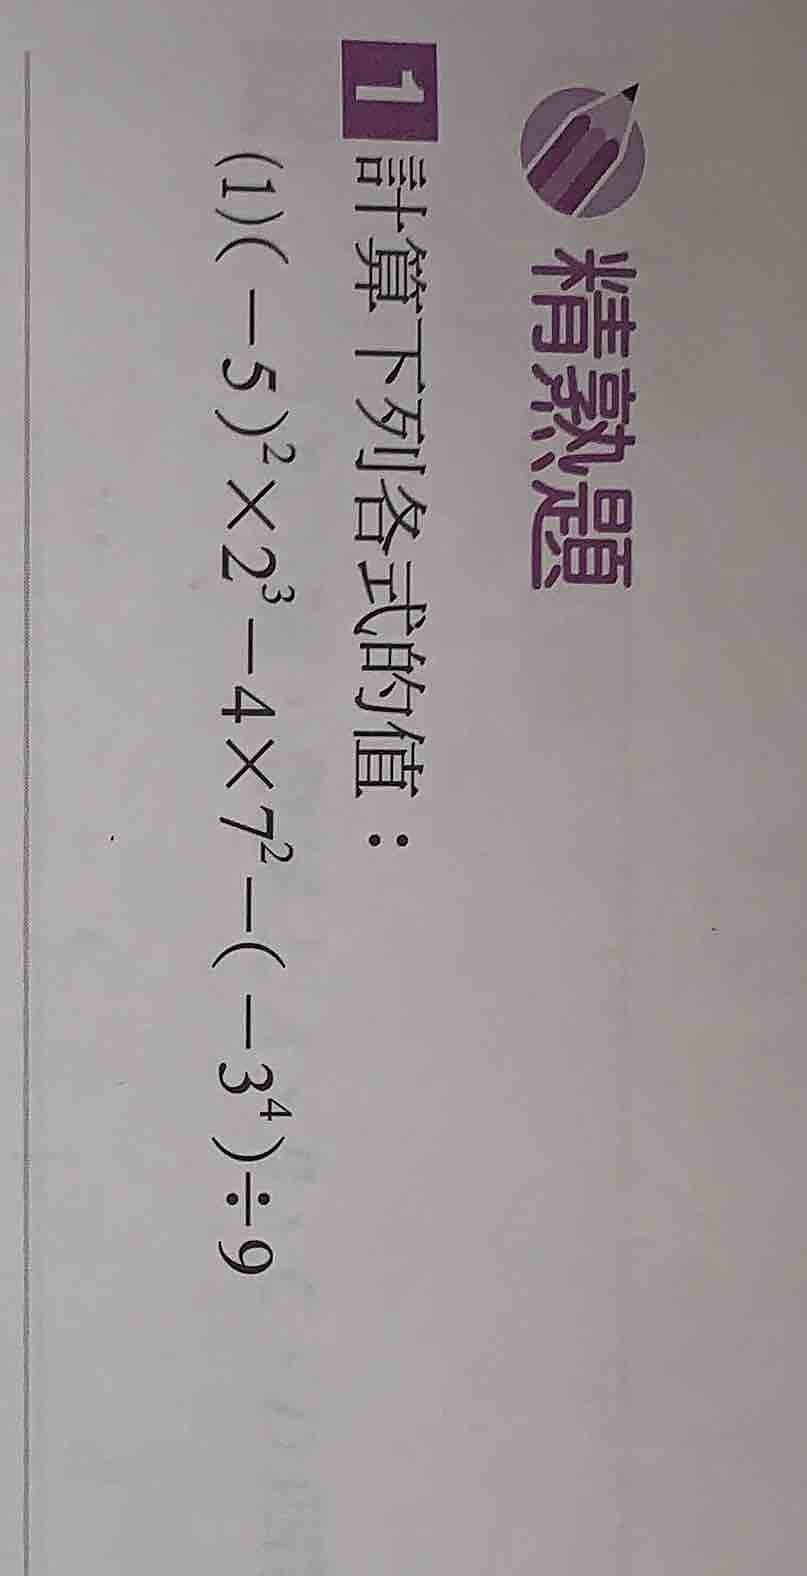 精熟題
1 計算下列各式的值：
(1)(－5)²×2³－4×7²－(－3⁴)÷9